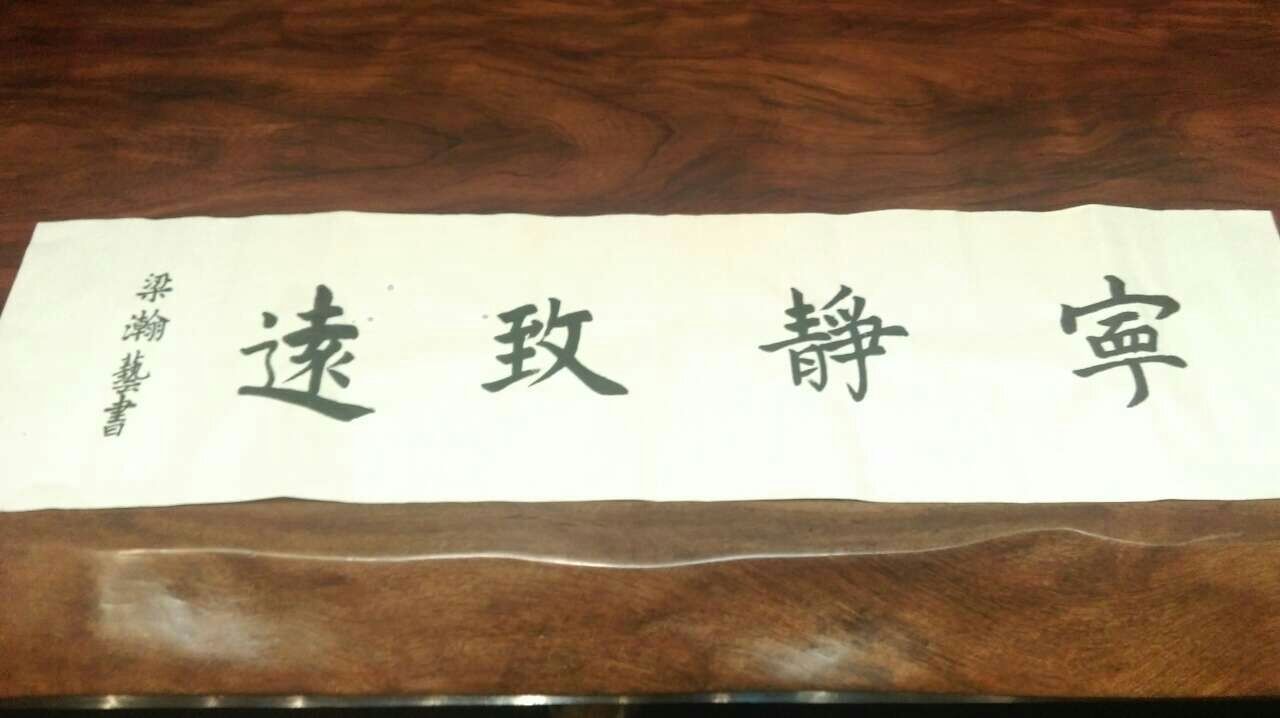 寧靜致遠
梁瀚藝書